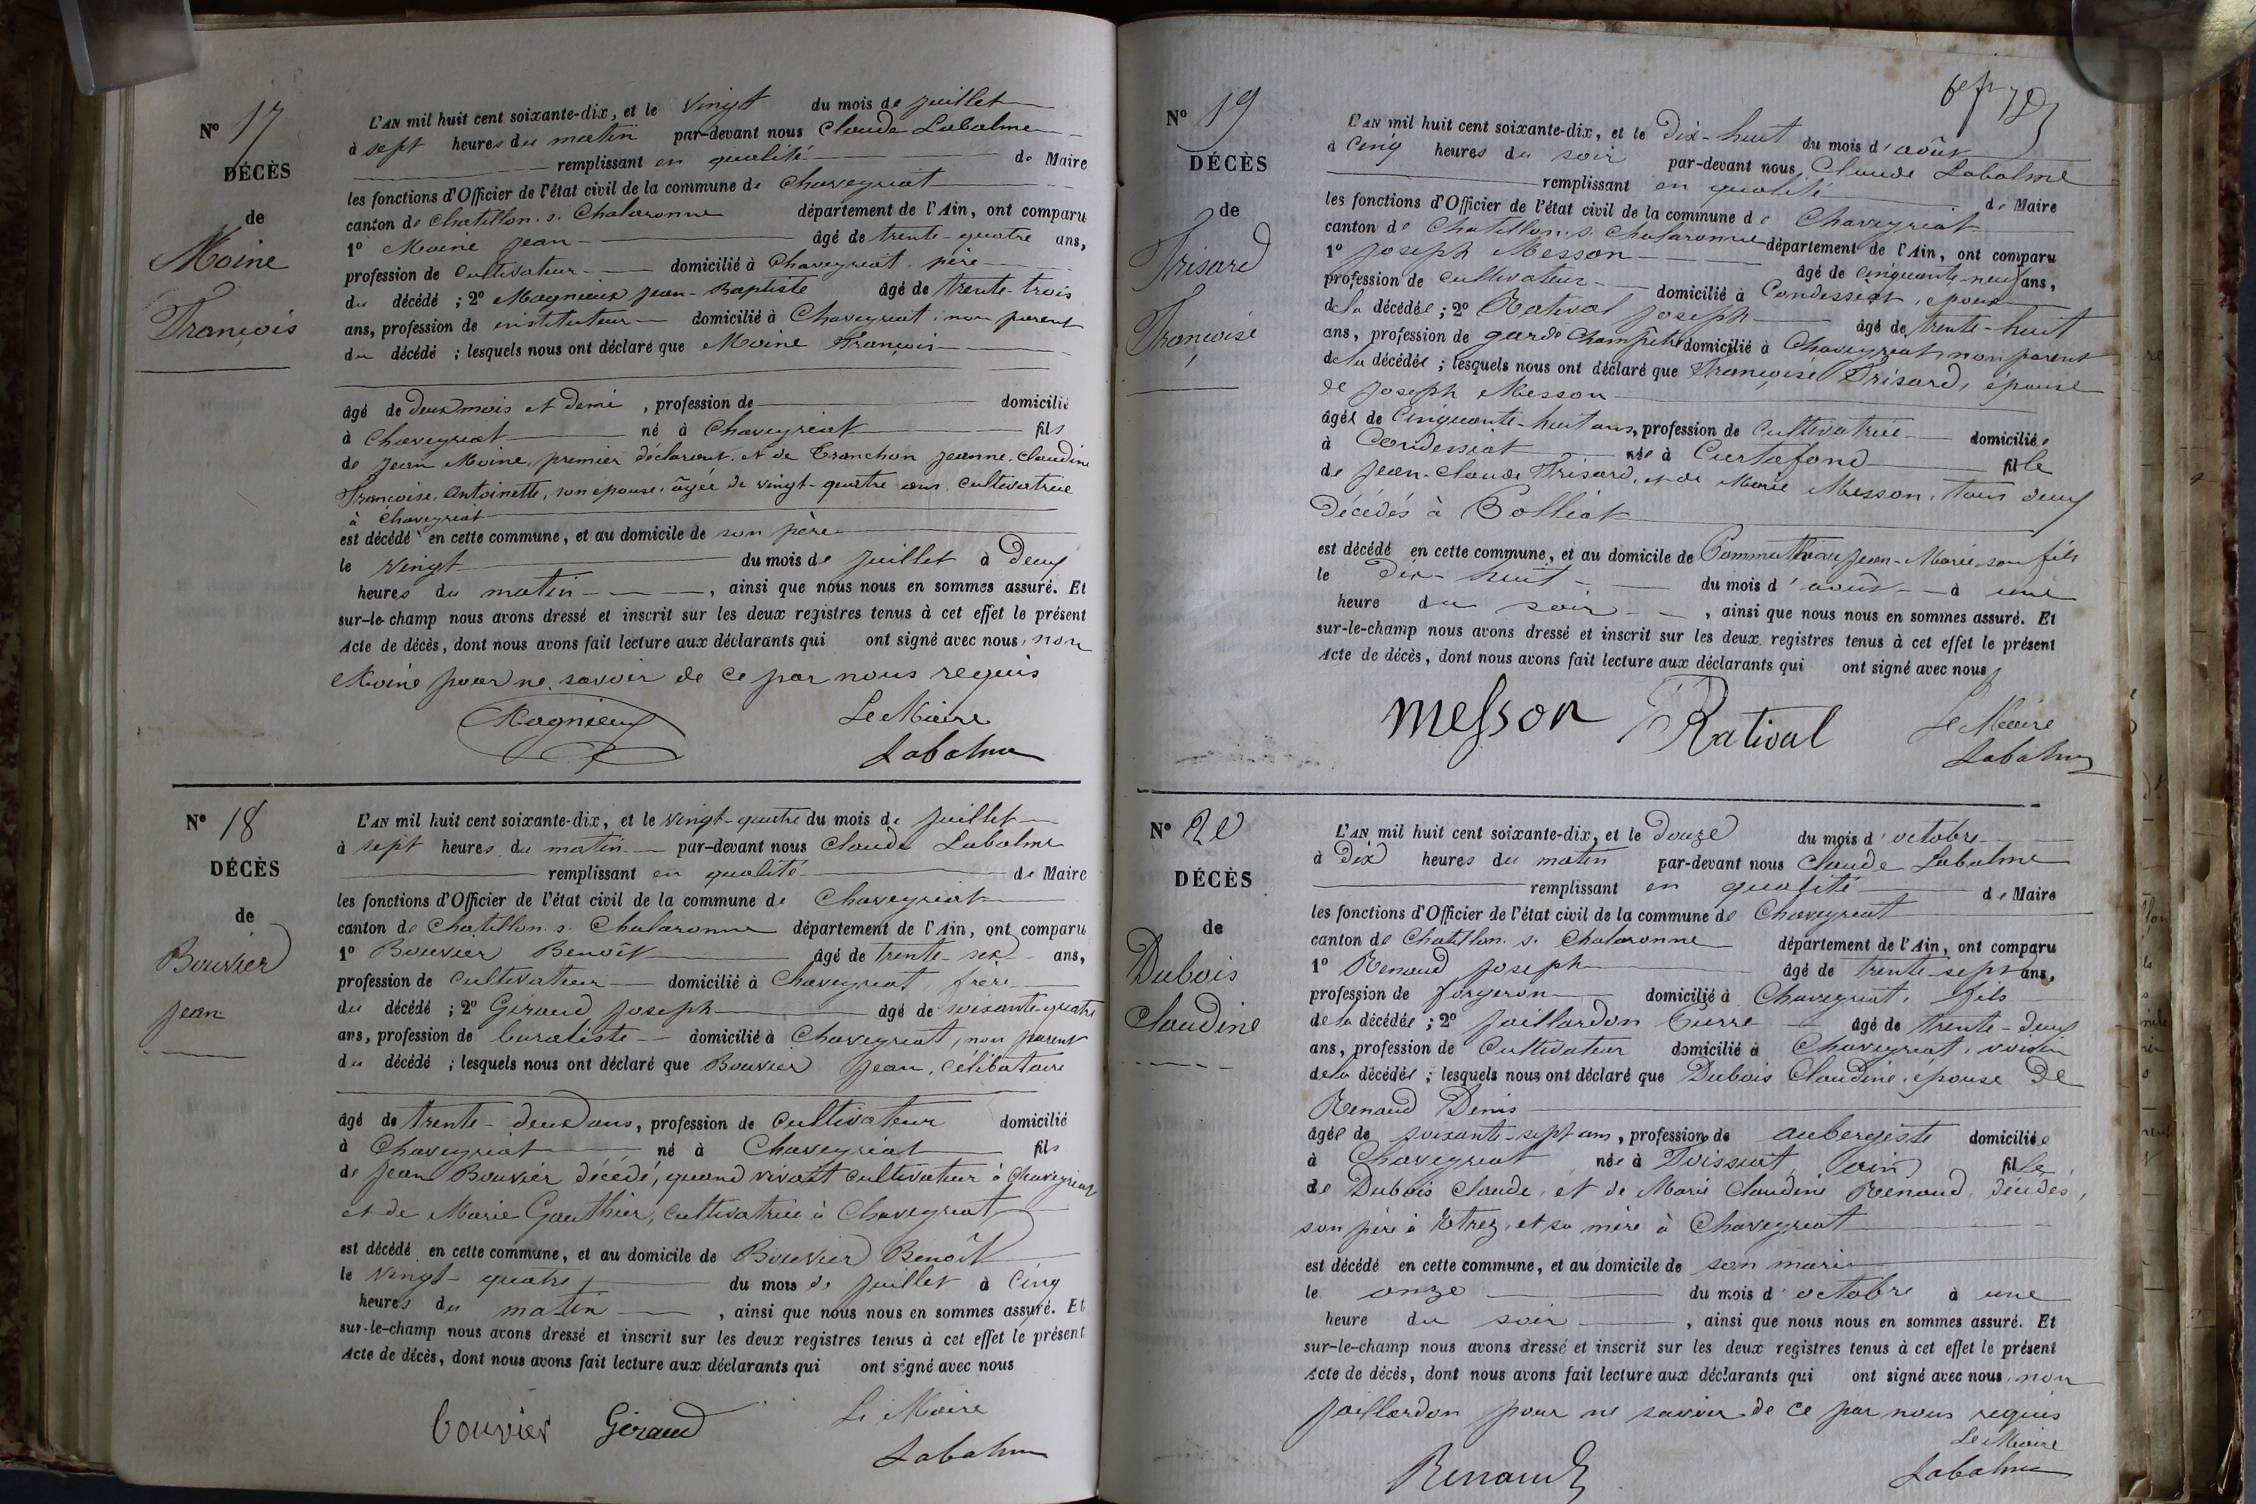 N° 17
DÉCÈS
de
Moine
François
L'AN mil huit cent soixante-dix, et le vingt du mois de juillet
à sept heures du matin par-devant nous Claude Labalme
remplissant en qualité de Maire
les fonctions d'Officier de l'état civil de la commune de Chaveyriat
canton de Chatillon s. Chalaronne département de l'Ain, ont comparu
1° Moine Jean âgé de trente-quatre ans,
profession de Cultivateur domicilié à Chaveyriat, père
du décédé ; 2° Magnieux Jean-Baptiste âgé de trente-trois
ans, profession de instituteur domicilié à Chaveyriat, non parent
du décédé ; lesquels nous ont déclaré que Moine François
âgé de deux mois et demi, profession de domicilié
à Chaveyriat né à Chaveyriat fils
de Jean Moine, premier déclarant, et de Tranchon Jeanne, Claudine
Françoise, Antoinette, son épouse, âgée de vingt-quatre ans, cultivatrice
à Chaveyriat
est décédé en cette commune, et au domicile de son père
le vingt du mois de juillet à deux
heures du matin, ainsi que nous nous en sommes assuré. Et
sur-le-champ nous avons dressé et inscrit sur les deux registres tenus à cet effet le présent
Acte de décès, dont nous avons fait lecture aux déclarants qui ont signé avec nous, non
Moine pour ne savoir de ce par nous requis
Magnieux Le Maire
Labalme
N° 18
DÉCÈS
de
Bouvier
Jean
L'AN mil huit cent soixante-dix, et le vingt-quatre du mois de juillet
à sept heures du matin par-devant nous Claude Labalme
remplissant en qualité de Maire
les fonctions d'Officier de l'état civil de la commune de Chaveyriat
canton de Chatillon s. Chalaronne département de l'Ain, ont comparu
1° Bouvier Benoît âgé de trente-six ans,
profession de Cultivateur domicilié à Chaveyriat, frère
du décédé ; 2° Giraud Joseph âgé de soixante-quatre
ans, profession de buraliste domicilié à Chaveyriat, non parent
du décédé ; lesquels nous ont déclaré que Bouvier Jean, célibataire
âgé de trente-deux ans, profession de Cultivateur domicilié
à Chaveyriat né à Chaveyriat fils
de Jean Bouvier décédé, quand vivait cultivateur à Chaveyriat
et de Marie Gauthier, cultivatrice à Chaveyriat
est décédé en cette commune, et au domicile de Bouvier Benoît
le vingt-quatre du mois de juillet à cinq
heures du matin, ainsi que nous nous en sommes assuré. Et
sur-le-champ nous avons dressé et inscrit sur les deux registres tenus à cet effet le présent
Acte de décès, dont nous avons fait lecture aux déclarants qui ont signé avec nous
Bouvier Giraud Le Maire
Labalme
N° 19
DÉCÈS
de
Frisard
Françoise
L'AN mil huit cent soixante-dix, et le Dix-huit du mois d'août
à cinq heures du soir par-devant nous Claude Labalme
remplissant en qualité de Maire
les fonctions d'Officier de l'état civil de la commune de Chaveyriat
canton de Chatillon s. Chalaronne département de l'Ain, ont comparu
1° Joseph Messon âgé de cinquante-neuf ans,
profession de cultivateur domicilié à Condessiat, époux
de la décédée ; 2° Ratival Joseph âgé de trente-huit
ans, profession de garde champêtre domicilié à Chaveyriat, non parent
de la décédée ; lesquels nous ont déclaré que Françoise Frisard, épouse
de Joseph Messon
âgée de cinquante-huit ans, profession de Cultivatrice domiciliée
à Condessiat née à Curtafond fille
de Jean-Claude Frisard, et de Marie Messon, tous deux
décédés à Polliat
est décédé en cette commune, et au domicile de Jean-Marie son fils
le dix-huit du mois d'août à une
heure du soir, ainsi que nous nous en sommes assuré. Et
sur-le-champ nous avons dressé et inscrit sur les deux registres tenus à cet effet le présent
Acte de décès, dont nous avons fait lecture aux déclarants qui ont signé avec nous
Messon Ratival Le Maire
Labalme
N° 20
DÉCÈS
de
Dubois
Claudine
L'AN mil huit cent soixante-dix, et le Douze du mois d'octobre
à Dix heures du matin par-devant nous Claude Labalme
remplissant en qualité de Maire
les fonctions d'Officier de l'état civil de la commune de Chaveyriat
canton de Chatillon s. Chalaronne département de l'Ain, ont comparu
1° Renaud Joseph âgé de trente-sept ans,
profession de forgeron domicilié à Chaveyriat, fils
de la décédée ; 2° Jaillardon âgé de trente-deux
ans, profession de Cultivateur domicilié à Chaveyriat, voisin
de la décédée ; lesquels nous ont déclaré que Dubois Claudine, épouse de
Renaud Denis
âgée de soixante-sept ans, profession de aubergiste domiciliée
à Chaveyriat née à Foissiat, (Ain) fille
de Dubois Claude, et de Marie Claudine Renaud, décédés,
son père à Etrez, et sa mère à Chaveyriat
est décédé en cette commune, et au domicile de son mari
le onze du mois d'octobre à une
heure du soir, ainsi que nous nous en sommes assuré. Et
sur-le-champ nous avons dressé et inscrit sur les deux registres tenus à cet effet le présent
Acte de décès, dont nous avons fait lecture aux déclarants qui ont signé avec nous, non
Jaillardon pour ne savoir de ce par nous requis
Le Maire
Renaud Labalme